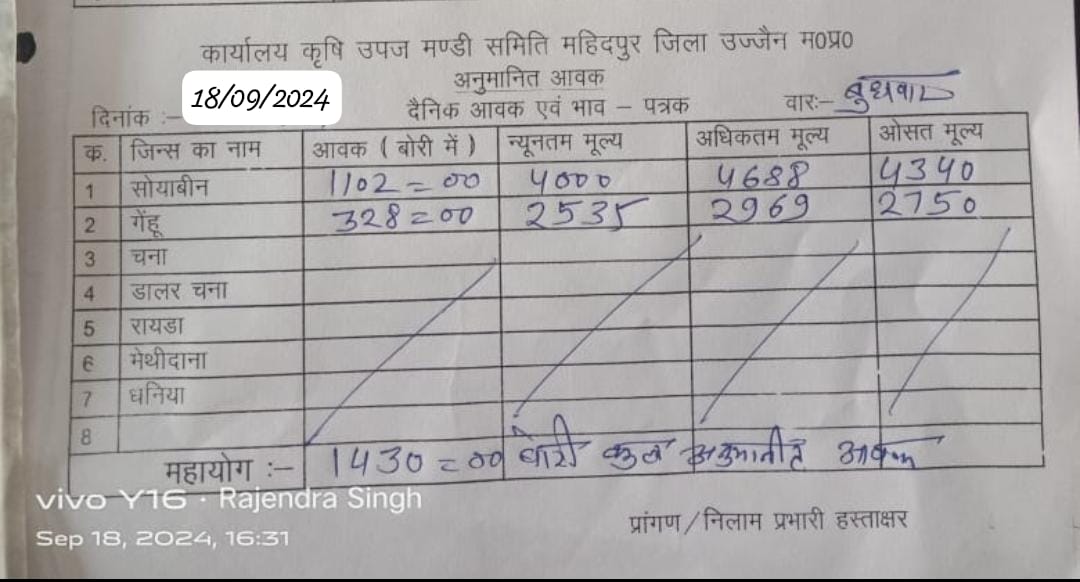 कार्यालय कृषि उपज मण्डी समिति महिदपुर जिला उज्जैन म0प्र0
अनुमानित आवक
दिनांक :- 18/09/2024 दैनिक आवक एवं भाव – पत्रक वार:- बुधवार
क. जिन्स का नाम आवक ( बोरी में ) न्यूनतम मूल्य अधिकतम मूल्य ओसत मूल्य
1 सोयाबीन 1102=00 4000 4688 4340
2 गेंहू 328=00 2535 2969 2750
3 चना
4 डालर चना
5 रायडा
6 मेथीदाना
7 धनिया
8
महायोग :- 1430=00 बोरी कुल अनुमानीत आवक
vivo Y16 · Rajendra Singh
Sep 18, 2024, 16:31
प्रांगण/निलाम प्रभारी हस्ताक्षर